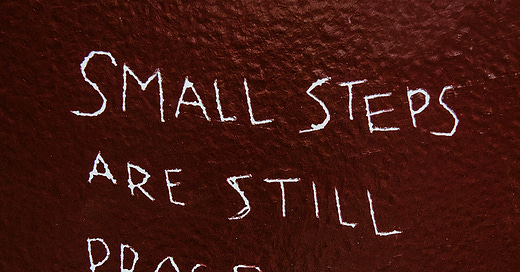 SMALL STEPS
ARE STILL